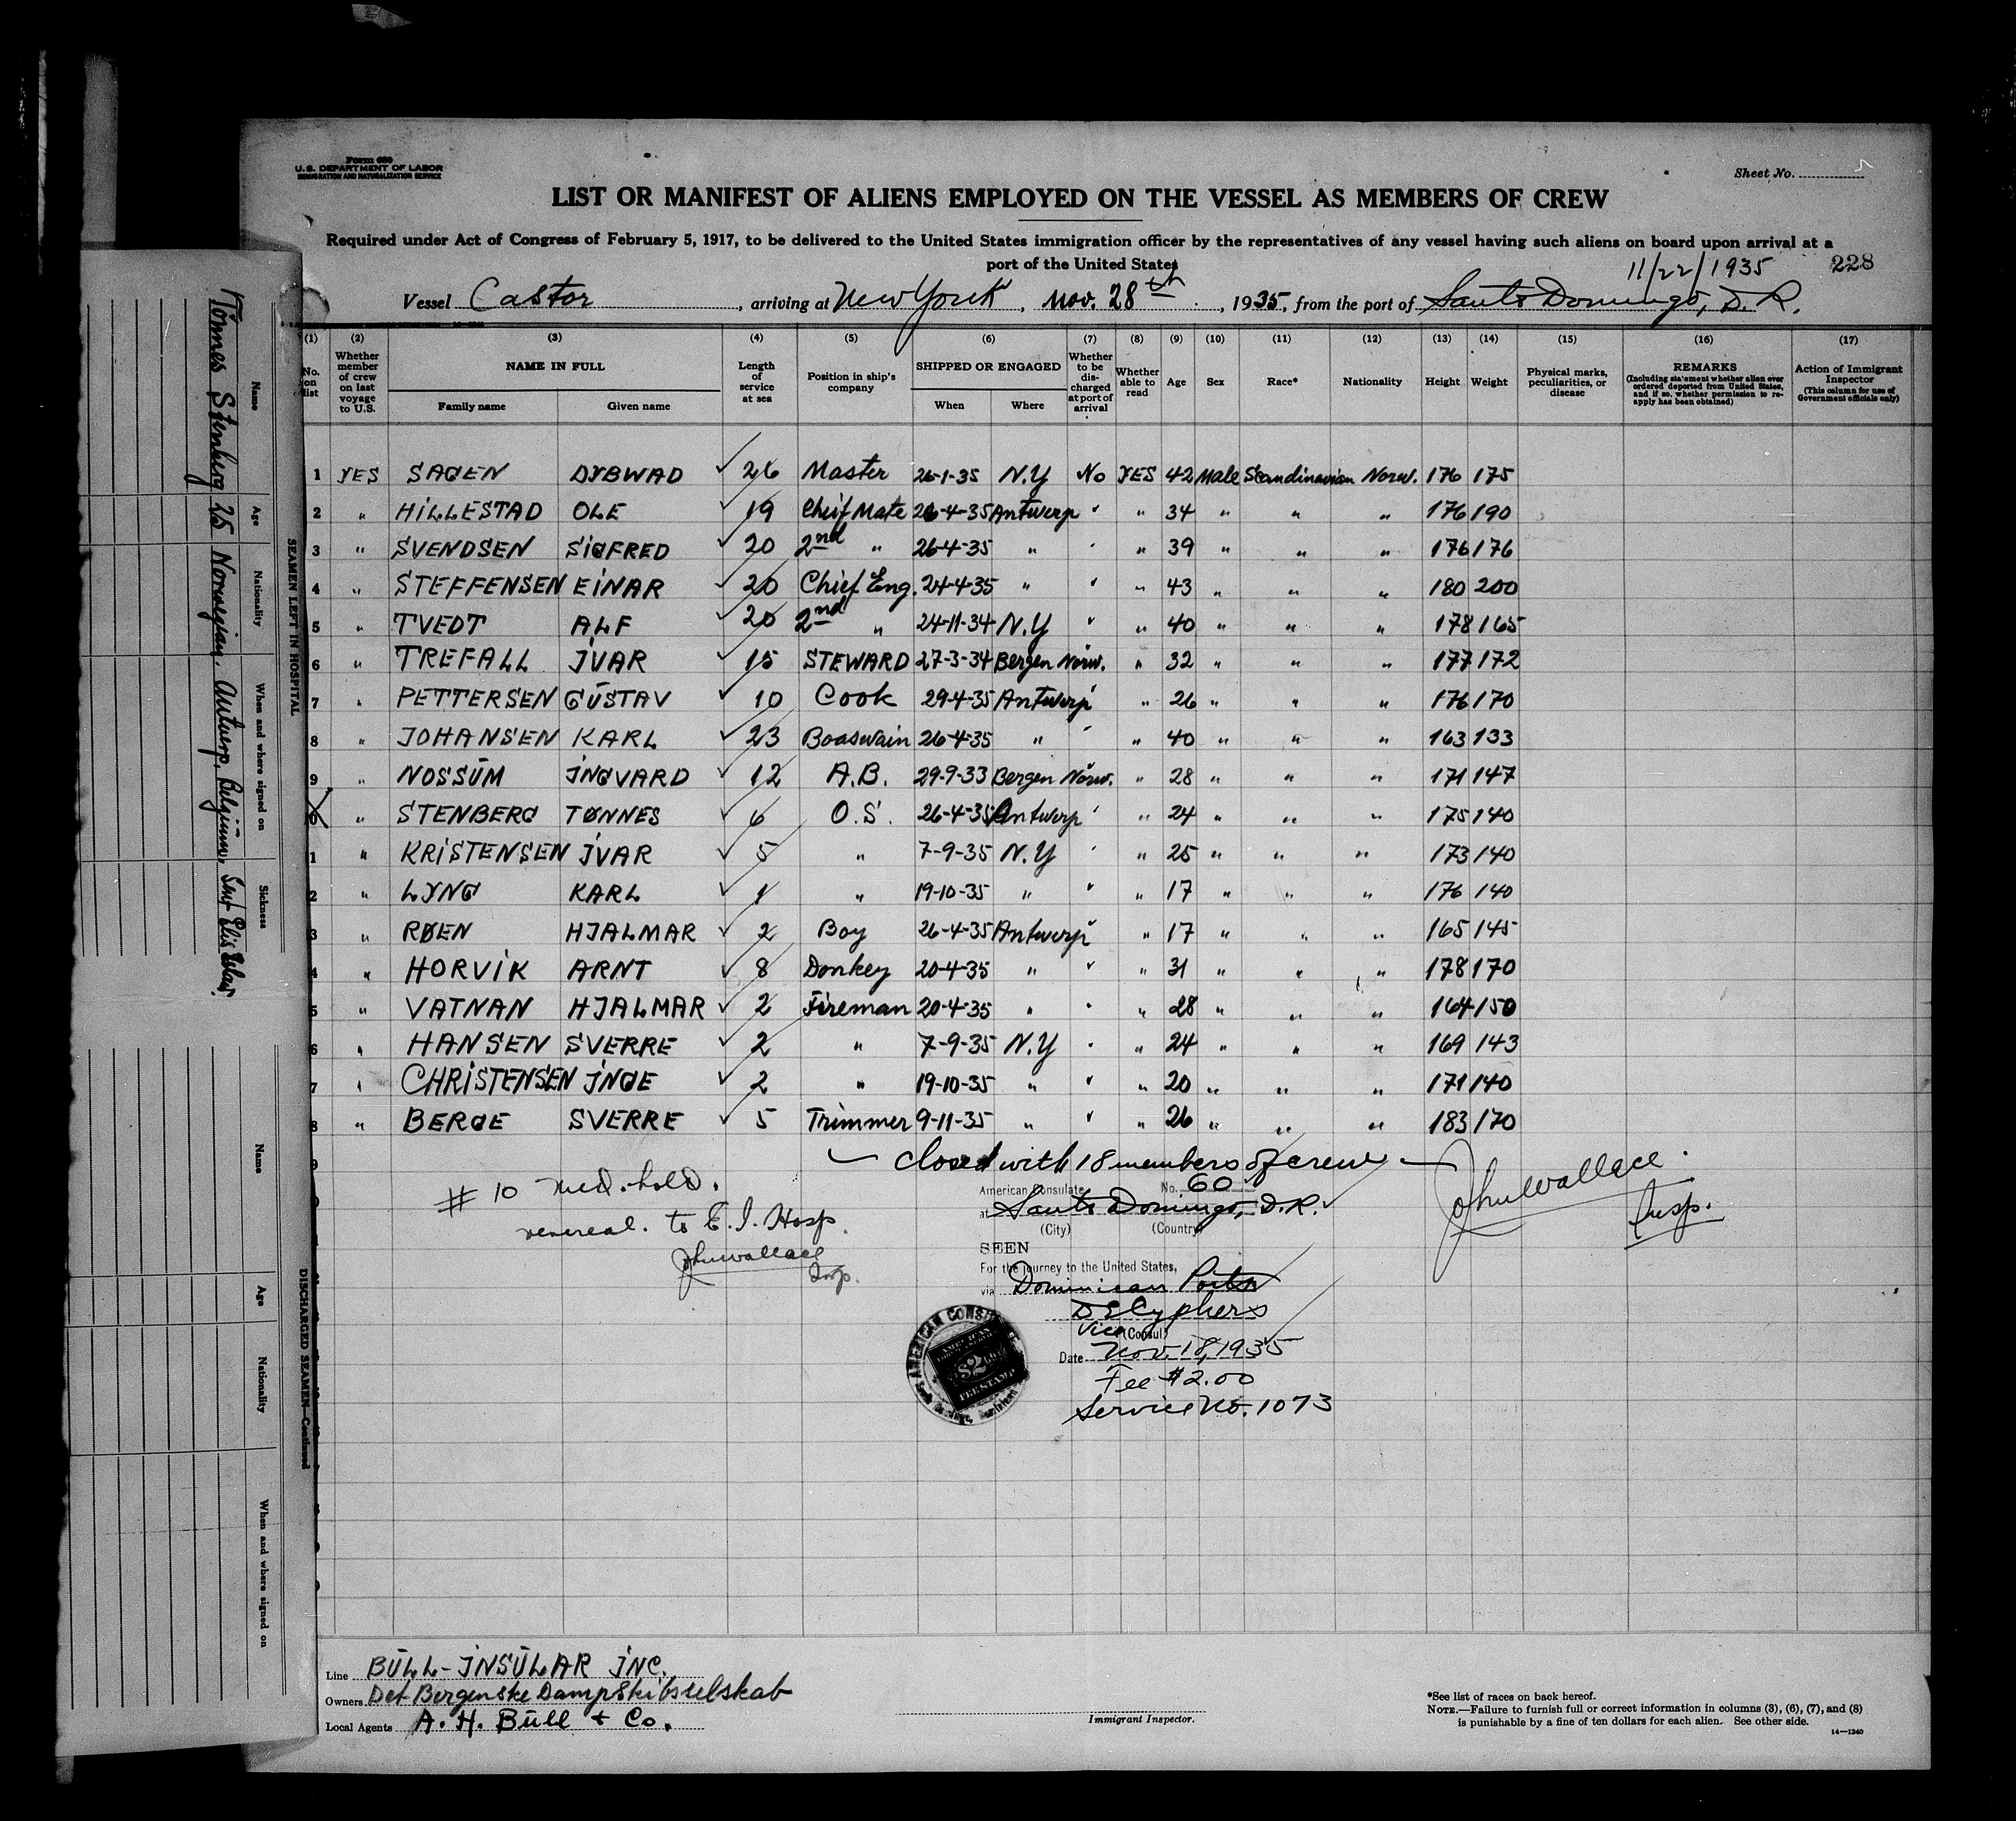 Form 680
U. S. DEPARTMENT OF LABOR
IMMIGRATION AND NATURALIZATION SERVICE
Sheet No.
5
LIST OR MANIFEST OF ALIENS EMPLOYED ON THE VESSEL AS MEMBERS OF CREW
Required under Act of Congress of February 5, 1917, to be delivered to the United States immigration officer by the representatives of any vessel having such aliens on board upon arrival at a
port of the United States
11/22/1935 228
Vessel Castor, arriving at New York, Nov. 28th, 1935, from the port of Santo Domingo, D.R.
(1) (2) (3) (4) (5) (6) (7) (8) (9) (10) (11) (12) (13) (14) (15) (16) (17)
No. on list
Whether member of crew on last voyage to U.S.
NAME IN FULL
Family name Given name
Length of service at sea
Position in ship's company
SHIPPED OR ENGAGED
When Where
Whether to be discharged at port of arrival
Whether able to read
Age
Sex
Race*
Nationality
Height
Weight
Physical marks, peculiarities, or disease
REMARKS
(Including statement whether alien ever ordered deported from United States, and if so, whether permission to reapply has been obtained)
Action of Immigrant Inspector
(This column for use of Government officials only)
1 YES SAGEN DYBWAD ✓ 26 Master 26-1-35 N.Y No YES 42 Male Scandinavian Norw. 176 175
2 " HILLESTAD OLE ✓ 19 Cheif Mate 26-4-35 Antwerp " " 34 " " " 176 190
3 " SVENDSEN SIGFRED ✓ 20 2nd " 26-4-35 " " " 39 " " " 176 176
4 " STEFFENSEN EINAR ✓ 20 Chief Eng. 24-4-35 " " " 43 " " " 180 200
5 " TVEDT ALF ✓ 20 2nd " 24-11-34 N.Y " " 40 " " " 178 165
6 " TREFALL IVAR ✓ 15 STEWARD 27-3-34 Bergen Norw. " 32 " " " 177 172
7 " PETTERSEN GUSTAV ✓ 10 Cook 29-4-35 Antwerp " " 26 " " " 176 170
8 " JOHANSEN KARL ✓ 23 Boaswain 26-4-35 " " " 40 " " " 163 133
9 " NOSSUM INGVARD ✓ 12 A.B. 29-9-33 Bergen Norw. " 28 " " " 171 147
0 " STENBERG TØNNES ✓ 6 O.S. 26-4-35 Antwerp " " 24 " " " 175 140
1 " KRISTENSEN IVAR ✓ 5 " 7-9-35 N.Y " " 25 " " " 173 140
2 " LYNG KARL ✓ 1 " 19-10-35 " " " 17 " " " 176 140
3 " RØEN HJALMAR ✓ 2 Boy 26-4-35 Antwerp " " 17 " " " 165 145
4 " HORVIK ARNT ✓ 8 Donkey 20-4-35 " " " 31 " " " 178 170
5 " VATNAN HJALMAR ✓ 2 Fireman 20-4-35 " " " 28 " " " 164 150
6 " HANSEN SVERRE ✓ 2 " 7-9-35 N.Y " " 24 " " " 169 143
7 " CHRISTENSEN INGE ✓ 2 " 19-10-35 " " " 20 " " " 171 140
8 " BERGE SVERRE ✓ 5 Trimmer 9-11-35 " " " 26 " " " 183 170
9
Closed with 18 members of crew
# 10 Med. hold.
venereal. to E. I. Hosp.
John Wallace
Insp.
American Consulate No. 60
at Santo Domingo, D.R. ✓
(City) (Country)
SEEN
For the journey to the United States,
via Dominican Ports
Vice (Consul)
Date Nov. 18, 1935
Fee $2.00
Service No. 1073
AMERICAN CONSULATE
$2
FEE STAMP
John Wallace
Insp.
Line BULL-INSULAR INC.
Owners Det Bergenske Dampskibsselskab
Local Agents A. H. Bull & Co.
Immigrant Inspector.
*See list of races on back hereof.
NOTE.—Failure to furnish full or correct information in columns (3), (6), (7), and (8)
is punishable by a fine of ten dollars for each alien. See other side.
14—1240
SEAMEN LEFT IN HOSPITAL
Name Age Nationality When and where signed on Sickness
Tönnes Stenberg 25 Norwegian. Antwerp, Belgium. Sent Elis Islan.
DISCHARGED SEAMEN—Continued
Name Age Nationality When and where signed on